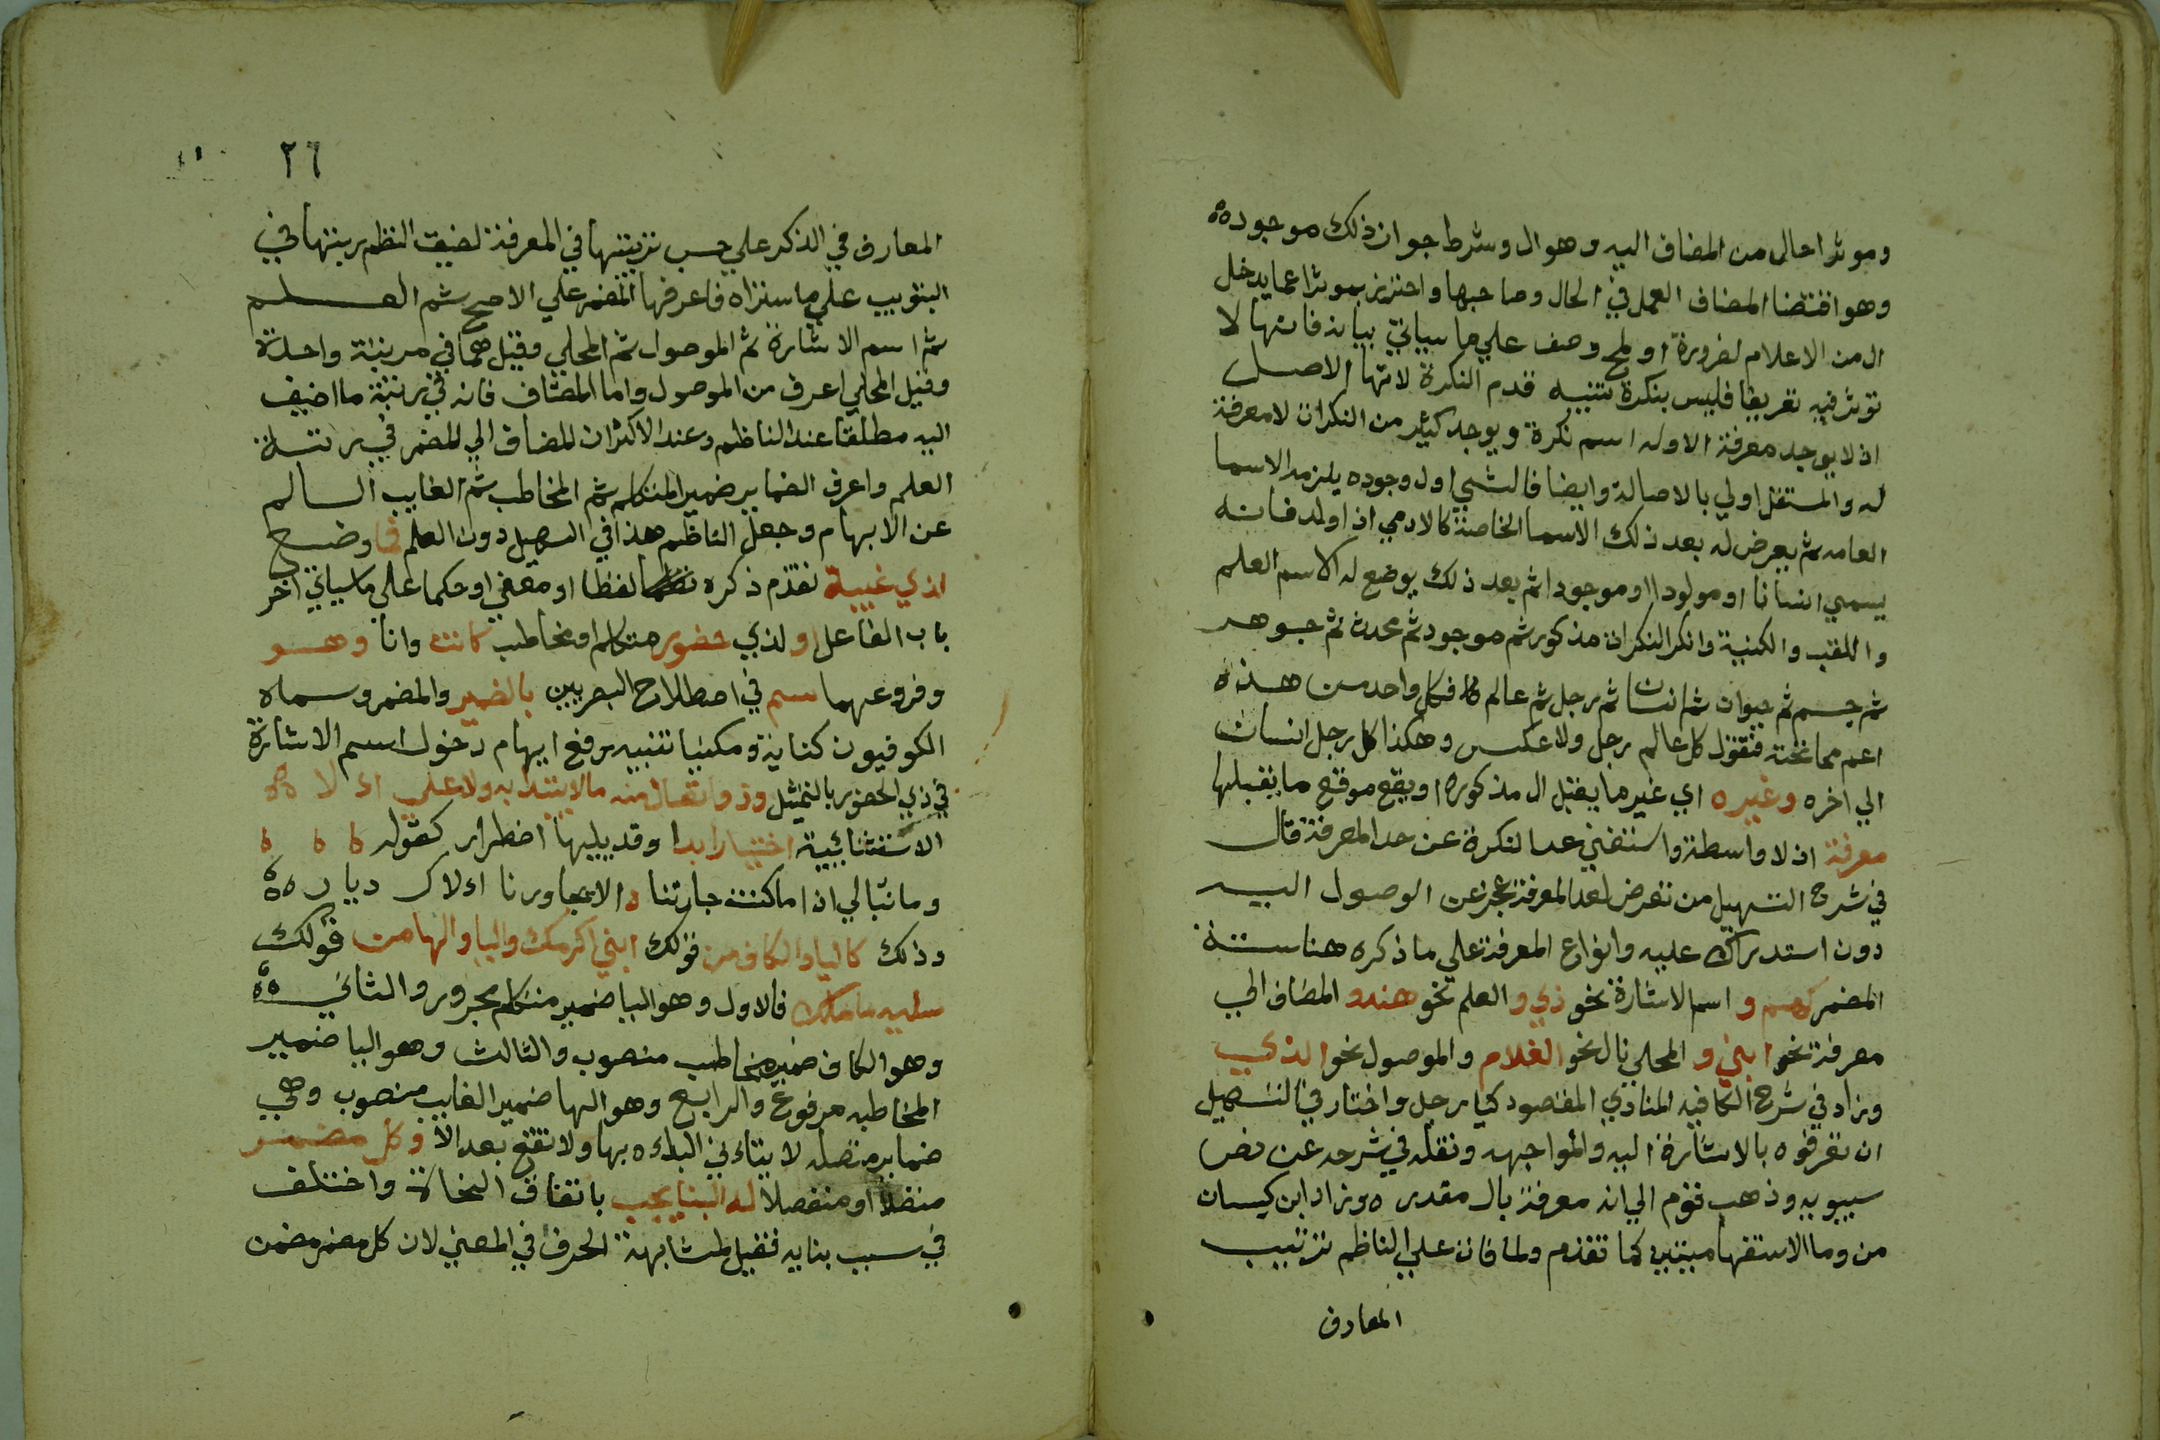 وموثرا حال من المضاف اليه وهو ال وشرط جواز ذلك موجود
وهو اقتضا المضاف العمل في الحال وصاحبها واحترز بموثرا عما يدخل
ال من الاعلام لضرورة او لمح وصف علي ما سياتي بيانه فانها لا
توثر فيه تعريفا فليس بنكرة تنبيه قدم النكرة لانها الاصل
اذ لا يوجد معرفة الا وله اسم نكرة ويوجد كثير من النكرات لا معرفة
له والمستقل اولي بالاصالة وايضا فالشي اول وجوده يلزمه الاسما
العامه ثم يعرض له بعد ذلك الاسما الخاصة كالادمي اذا ولد فانه
يسمي انسانا او مولودا او موجودا ثم بعد ذلك يوضع له الاسم العلم
واللقب والكنية وانكر النكرات مذكور ثم موجود ثم محدث ثم جوهر
ثم جسم ثم حيوان ثم انسان ثم رجل ثم عالم فكل واحد من هذه
اعم مما تحته فتقول كل عالم رجل ولا عكس وهكذا كل رجل انسان
الي اخره وغيره اي غير ما يقبل ال المذكوره او يقع موقع ما يقبلها
معرفة اذ لا واسطة واستغني بحد النكرة عن حد المعرفة قال
في شرح التسهيل من تعرض لحد المعرفة عجز عن الوصول اليه
دون استدراك عليه وانواع المعرفة علي ما ذكره هنا ستة
المضمر كهم و اسم الاشارة نحو ذي و العلم نحو هند و المضاف الي
معرفة نحو ابني و المحلي بال نحو الغلام والموصول نحو الذي
وزاد في شرح الكافيه المنادي المقصود كيا رجل واختار في التسهيل
ان تعرفه بالاشارة اليه والمواجهه ونقله في شرحه عن نص
سيبويه وذهب قوم الي انه معرفة بال مقدره وزاد ابن كيسان
من وما الاستفهاميتين كما تقدم ولما فات علي الناظم ترتيب
المعارف
٢٦
المعارف في الذكر علي حسب ترتيبها في المعرفة لضيق النظم رتبها في
التبويب علي ما ستراه فاعرفها المضمر علي الاصح ثم العلم
ثم اسم الاشارة ثم الموصول ثم المحلي وقيل هما في مرتبة واحدة
وقيل المحلي اعرف من الموصول واما المضاف فانه في رتبة ما اضيف
اليه مطلقا عند الناظم وعند الاكثر ان المضاف الي المضمر في رتبة
العلم واعرف الضماير ضمير المتكلم ثم المخاطب ثم الغايب السالم
عن الابهام وجعل الناظم هذا في التسهيل دون العلم فما وضع
لذي غيبة تقدم ذكره لفظا او معني او حكما علي ما سياتي اخر
باب الفاعل او لذي حضور متكلم او مخاطب كانت وانا وهو
وفروعهما سم في اصطلاح البصريين بالضمير والمضمر وسماه
الكوفيون كناية ومكنيا تنبيه رفع ايهام دخول اسم الاشارة
في ذي الحضور بالتمثيل وذو اتصال منه ما لا يبتدا به ولا علي الا
الاستثنائية اختيارا ابدا وقد يليها اضطرارا كقوله
وما نبالي اذا ما كنت جارتنا الا يجاورنا الاك ديار
وذلك كاليا والكاف من قولك ابني اكرمك واليا والها من قولك
سليه ما ملك فالاول وهو اليا ضمير متكلم مجرور والثاني
وهو الكاف ضمير مخاطب منصوب والثالث وهو اليا ضمير
المخاطبه مرفوع والرابع وهو الها ضمير الغايب منصوب وهي
ضماير متصله لا يتاتي البداه بها ولا تقع بعد الا وكل مضمر
متصلا او منفصلا له البنا يجب باتفاق النحاة واختلف
في سبب بنايه فقيل لمشابهة الحرف في المعني لان كل مضمر مضمن